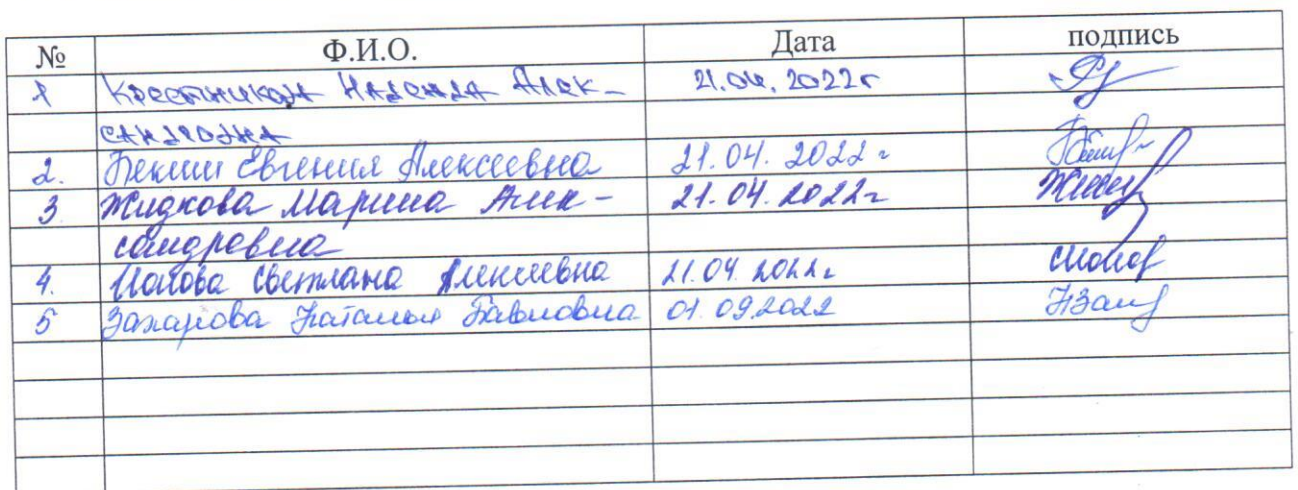 № Ф.И.О. Дата подпись
1 Крестникова Надежда Алек- 21.04.2022г
сандровна
2. Бекиш Евгения Алексеевна 21.04.2022г
3 Жидкова Марина Алек- 21.04.2022г
сандровна
4. Попова Светлана Алексеевна 21.04.2022г
5 Захарова Наталья Павловна 01.09.2022